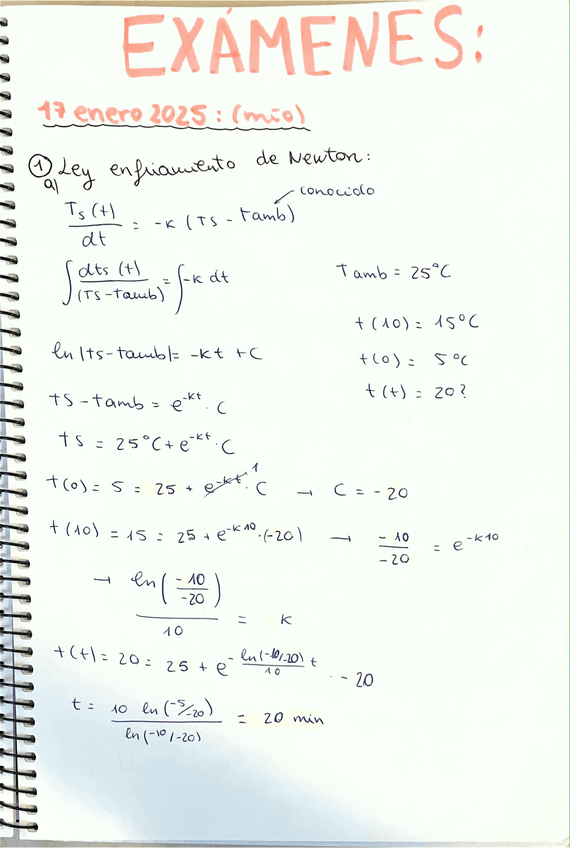 EXÁMENES:
17 enero 2025: (mío)
① Ley enfriamiento de Newton:
a)
conocido
Ts(t)/dt = -k (Ts - tamb)
∫ dts(t)/(Ts-tamb) = ∫ -k dt
Tamb = 25°C
t(10) = 15°C
ln|ts-tamb| = -kt + C
t(0) = 5°C
t(t) = 20?
ts-tamb = e^-kt · C
ts = 25°C + e^-kt · C
t(0) = 5 = 25 + e^-kt 1 · C → C = -20
t(10) = 15 = 25 + e^-k10 · (-20) → -10/-20 = e^-k10
→ ln(-10/-20)/10 = k
t(t) = 20 = 25 + e^- ln(-10/-20)/10 t · -20
t = 10 ln(-5/-20)/ln(-10/-20) = 20 min